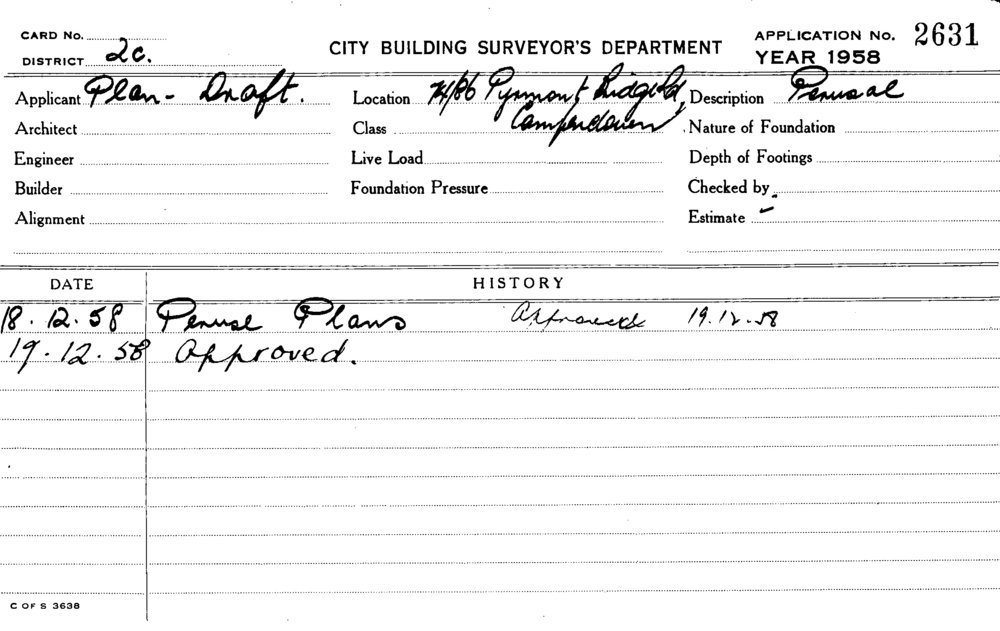 CARD No.
DISTRICT 2c.
CITY BUILDING SURVEYOR'S DEPARTMENT
APPLICATION No. 2631
YEAR 1958
Applicant Plan-Draft.
Location 74/86 Pyrmont Bridge Rd, Camperdown
Description Perusal
Architect
Class
Nature of Foundation
Engineer
Live Load
Depth of Footings
Builder
Foundation Pressure
Checked by
Alignment
Estimate
DATE HISTORY
18.12.58 Peruse Plans Approved 19.12.58
19.12.58 Approved.
C OF S 3638